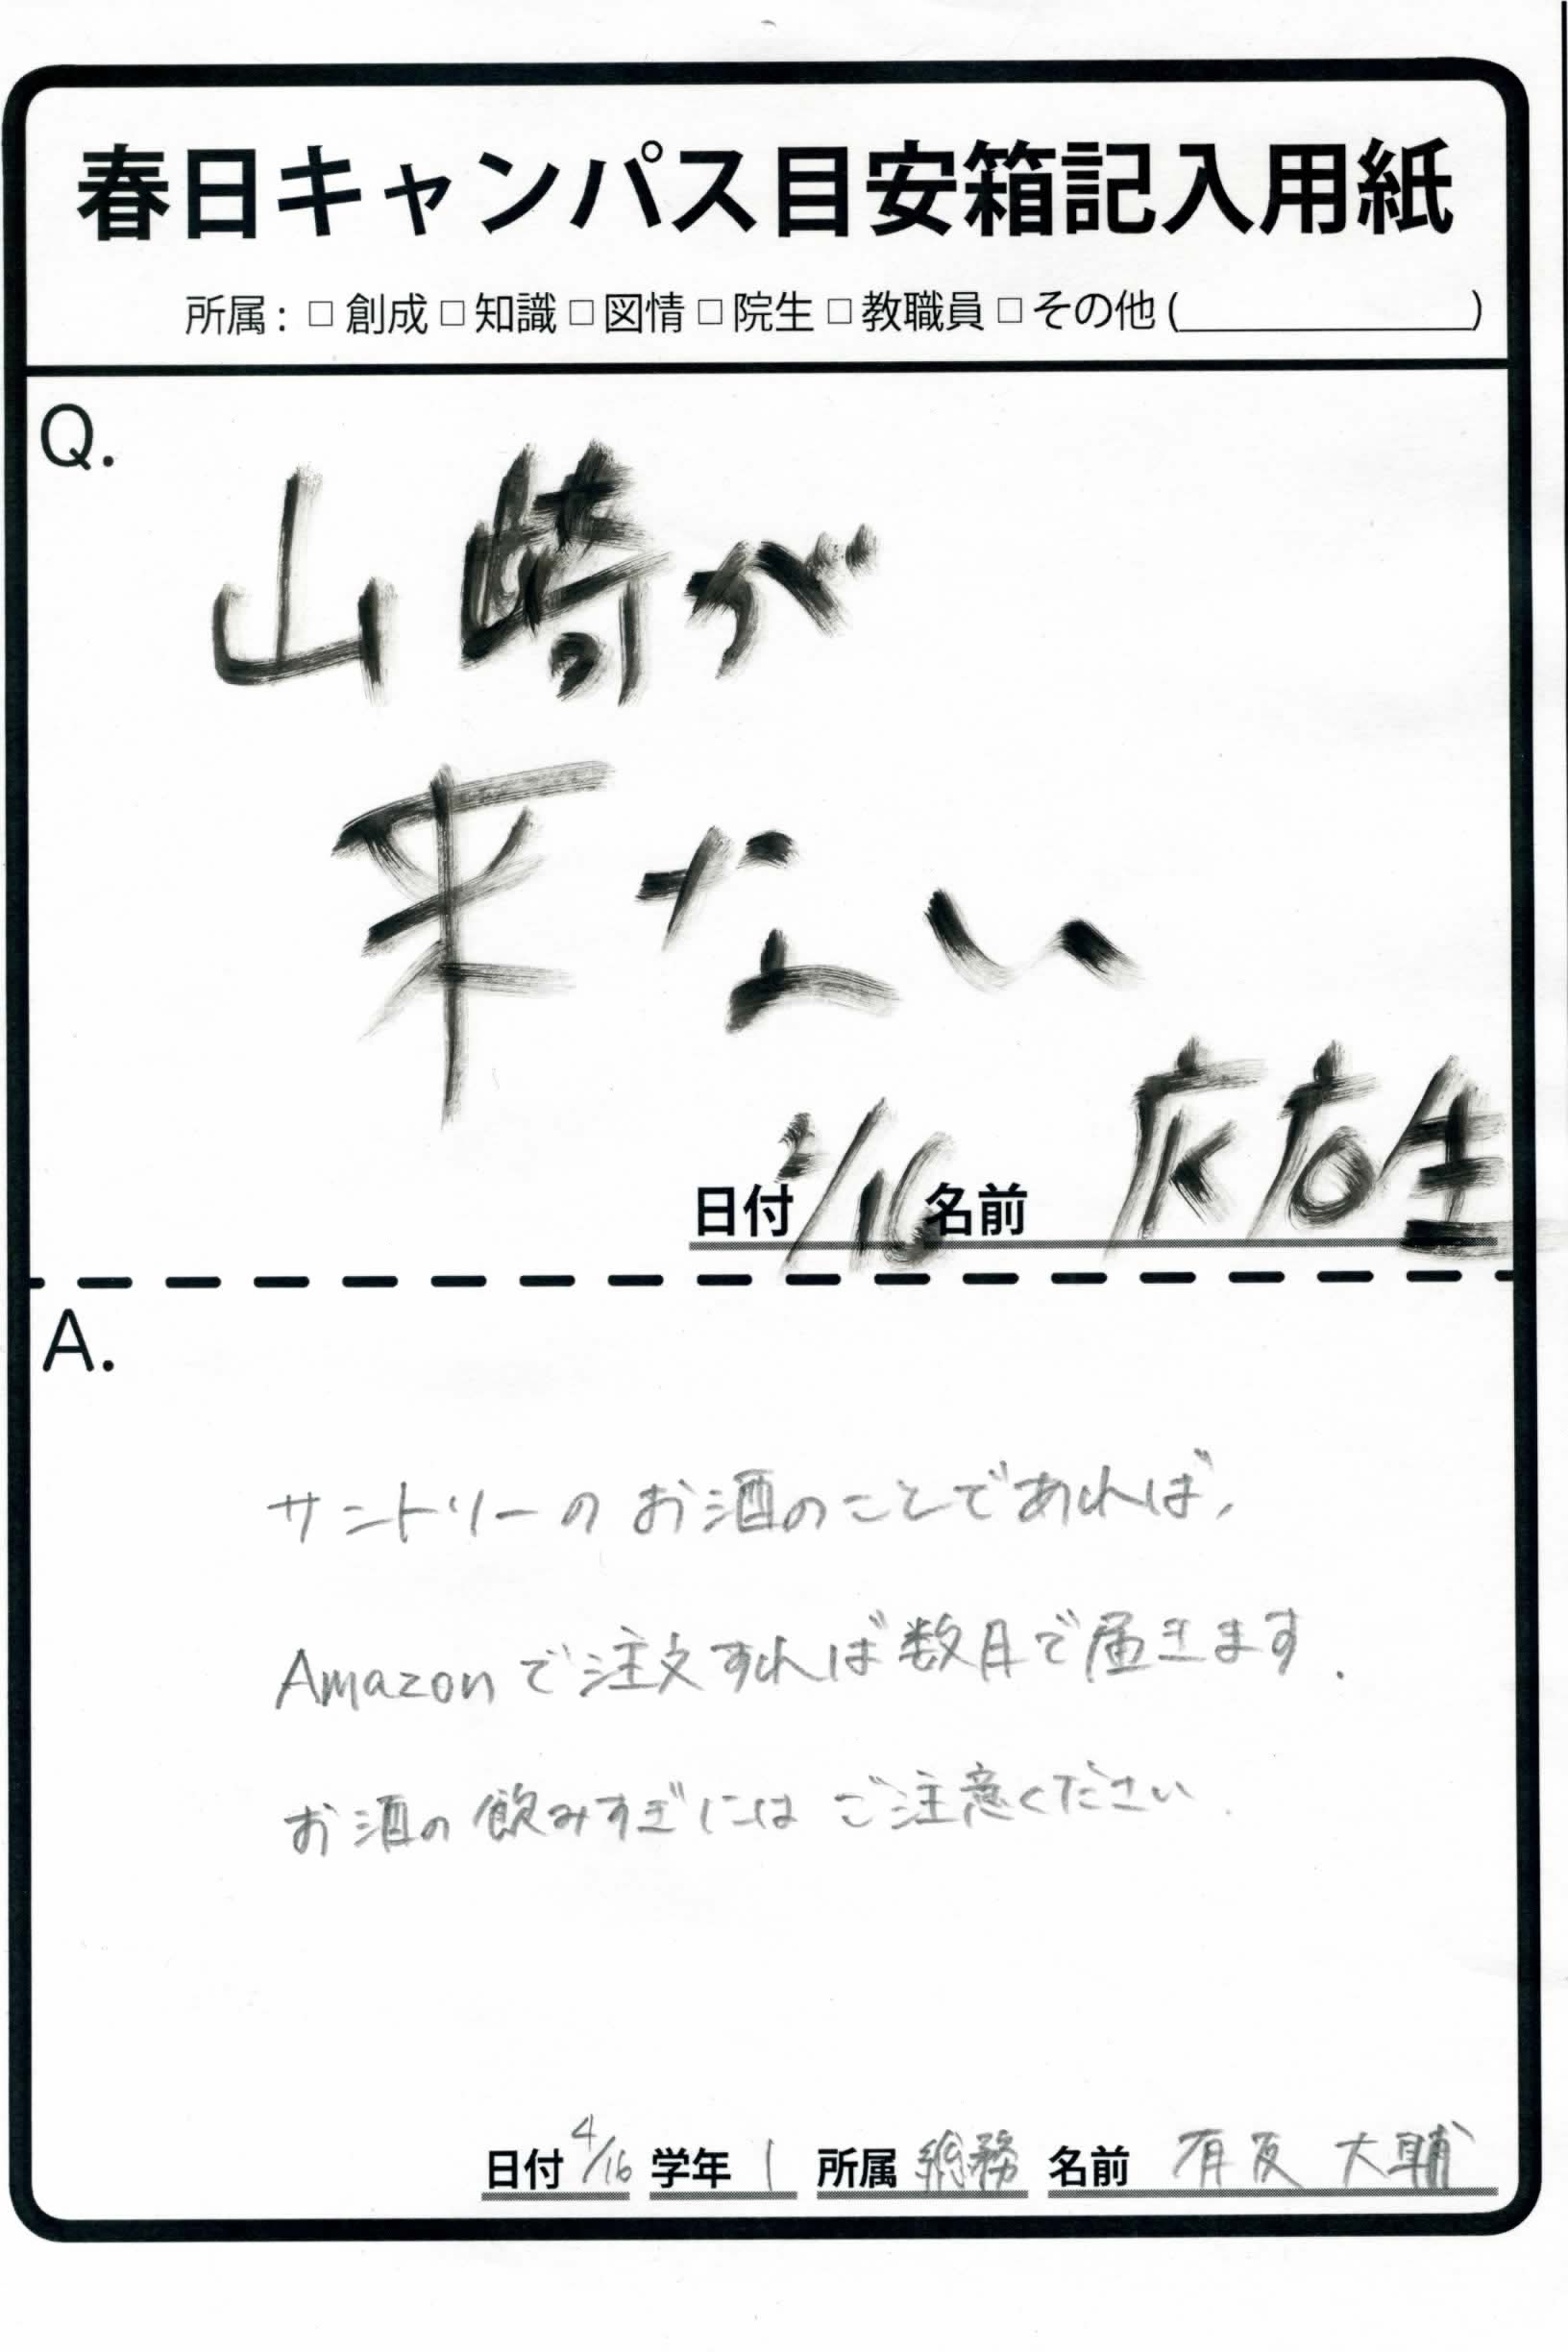 春日キャンパス目安箱記入用紙
所属:□ 創成 □ 知識 □ 図情 □ 院生 □ 教職員 □ その他 ( )
Q.
山崎が
来ない
日付 2/16 名前
A.
サントリーのお酒のことであれば,
Amazonで注文すれば数月で届きます.
お酒の飲みすぎにはご注意ください.
日付 4/16 学年 1 所属 総務 名前 有阪 大輔